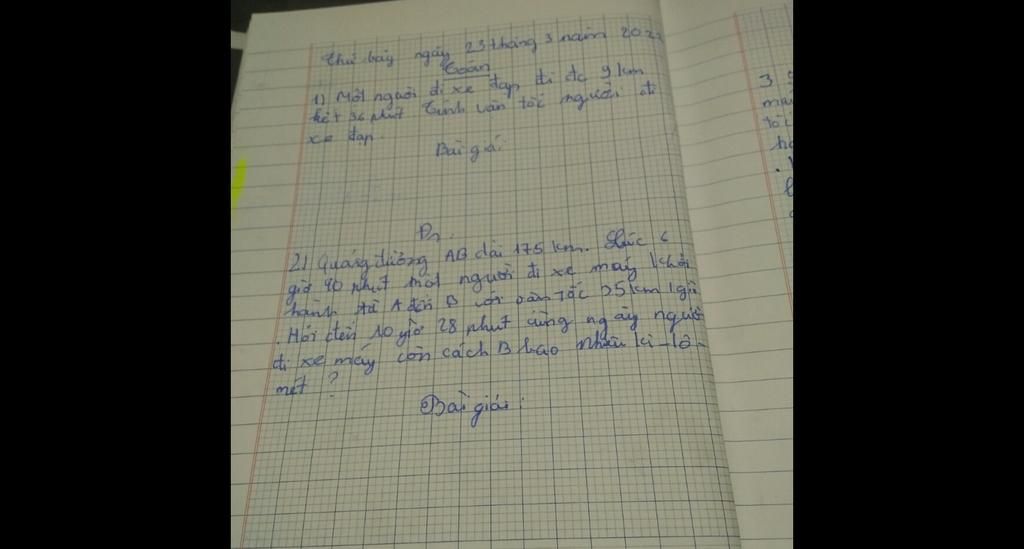 Thứ bảy ngày 23 tháng 3 năm 202
Toán
1) Một người đi xe đạp đi đc 9 km
hết 36 phút Tính vận tốc người đi
xe đạp.
Bài giải
Đs.
2) Quãng đường AB dài 175 km. Lúc 6
giờ 40 phút một người đi xe máy khởi
hành từ A đến B với vận tốc 25 km/giờ
. Hỏi đến 10 giờ 28 phút cùng ngày người
đi xe máy còn cách B bao nhiêu ki-lô-
mét ?
Bài giải :
3